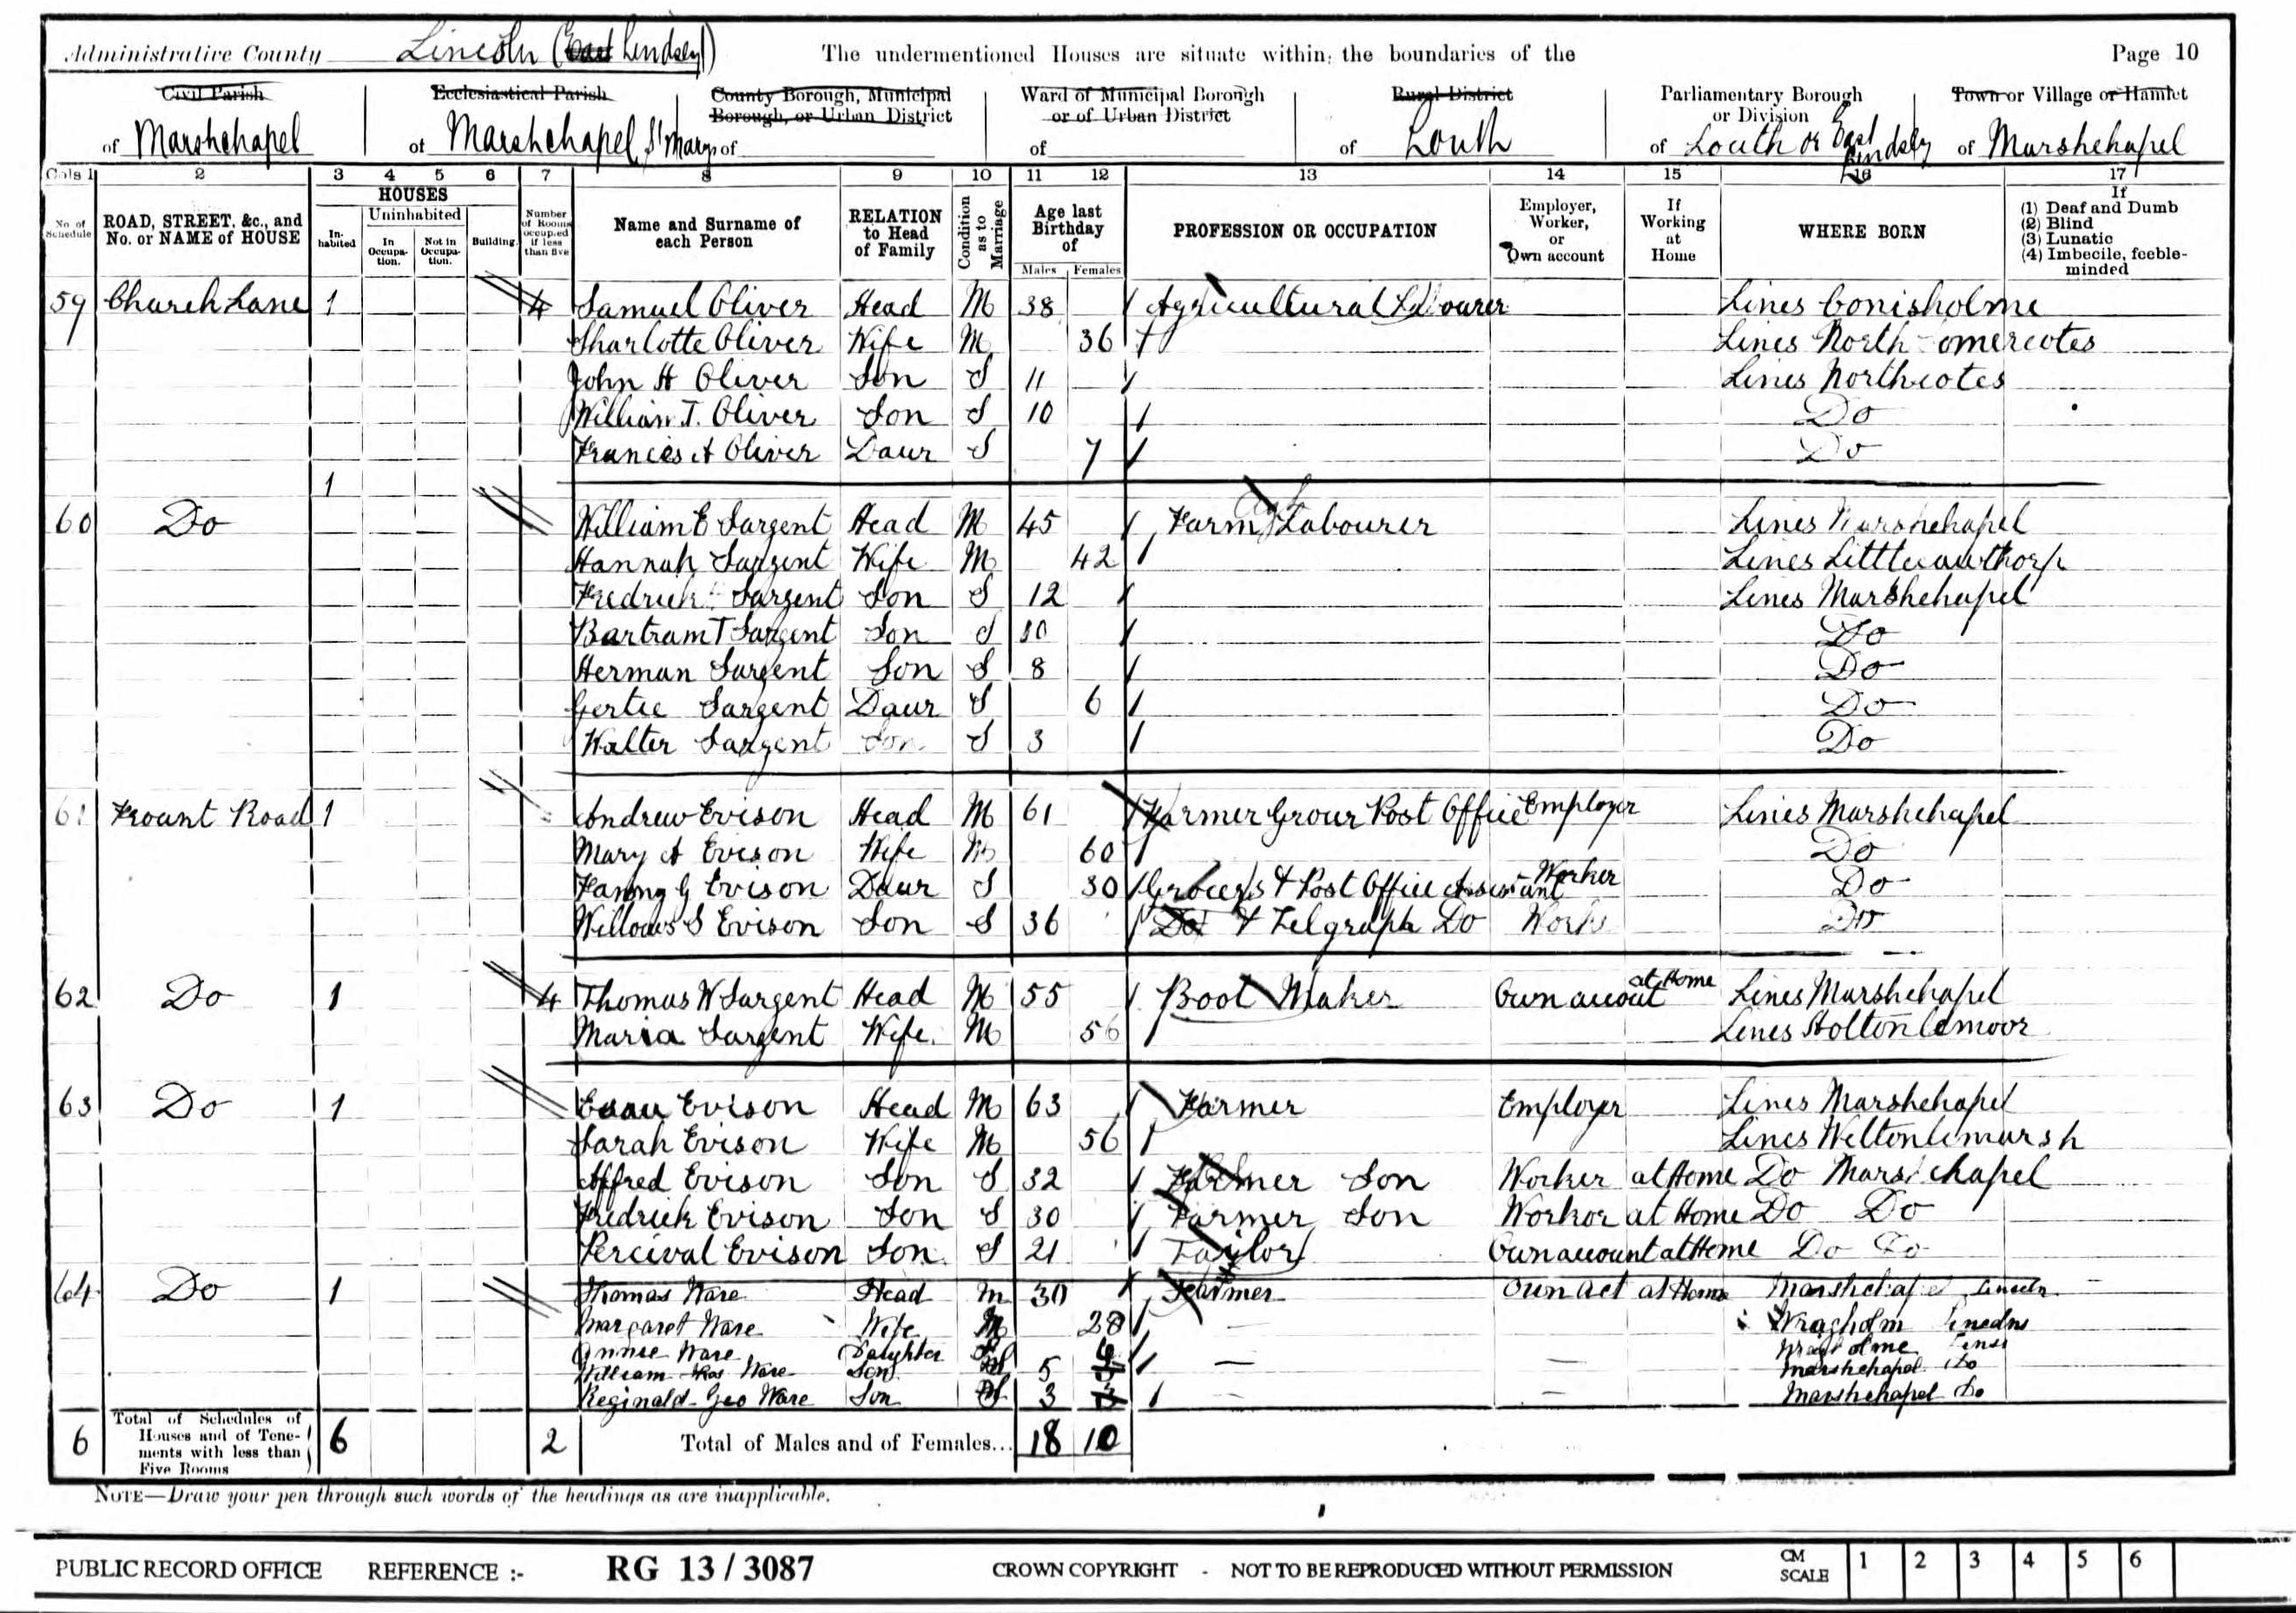 Administrative County Lincoln (East Lindsey) The undermentioned Houses are situate within the boundaries of the Page 10
Civil Parish Ecclesiastical Parish County Borough, Municipal Borough, or Urban District Ward of Municipal Borough or of Urban District Rural District Parliamentary Borough or Division Town or Village or Hamlet
of Marshchapel of Marshchapel St Marys of of of Louth of Louth or East Lindsey of Marshchapel
Cols 1 2 3 4 5 6 7 8 9 10 11 12 13 14 15 16 17
No. of Schedule ROAD, STREET, &c., and No. or NAME of HOUSE HOUSES Inhabited Uninhabited In Occupation. Not in Occupation. Building. Number of Rooms occupied if less than five Name and Surname of each Person RELATION to Head of Family Condition as to Marriage Age last Birthday of Males Females PROFESSION OR OCCUPATION Employer, Worker, or Own account If Working at Home WHERE BORN If (1) Deaf and Dumb (2) Blind (3) Lunatic (4) Imbecile, feeble-minded
59 Church Lane 1 4 Samuel Oliver Head M 38 Agricultural Labourer Lincs Conisholme
Sharlotte Oliver Wife M 36 Lincs North omercotes
John H Oliver Son S 11 Lincs Northcotes
William T. Oliver Son S 10 Do
Francies A Oliver Daur S 7 Do
1
60 Do William E Sargent Head M 45 Farm Labourer Lincs Marshchapel
Hannah Sargent Wife M 42 Lincs Littlecawthorp
Fredrick Sargent Son S 12 Lincs Marshchapel
Bartram T Sargent Son S 10 Do
Herman Sargent Son S 8 Do
Gertie Sargent Daur S 6 Do
Walter Sargent Son S 3 Do
61 Frount Road 1 Andrew Evison Head M 61 Farmer Grour Post Office Employer Lincs Marshchapel
Mary A Evison Wife M 60 Do
Fanny G Evison Daur S 30 Grocers & Post Office Assistant Worker Do
Willows S Evison Son S 36 Do & Telgraph Do Work Do
62 Do 1 4 Thomas W Sargent Head M 55 Boot Maker Own account at Home Lincs Marshchapel
Maria Sargent Wife M 56 Lincs Holtonlemoor
63 Do 1 Esau Evison Head M 63 Farmer Employer Lincs Marshchapel
Sarah Evison Wife M 56 Lincs Weltonlemarsh
Alfred Evison Son S 32 Farmer Son Worker at Home Do Marshchapel
Fredrick Evison Son S 30 Farmer Son Worker at Home Do Do
Percival Evison Son S 21 Taylor Own account at Home Do Do
64 Do 1 Thomas Ware Head M 30 Farmer Own act at Home Marshchapel Lincoln
Margaret Ware Wife M 28 Wragholm
Annie Ware Daughter S 6 Wragholme
William Ware Son S 5 Marshchapel Do
Reginald Geo Ware Son S 3 Marshchapel Do
6 Total of Schedules of Houses and of Tenements with less than Five Rooms 6 2 Total of Males and of Females... 18 10
NOTE—Draw your pen through such words of the headings as are inapplicable.
PUBLIC RECORD OFFICE REFERENCE :- RG 13 / 3087 CROWN COPYRIGHT - NOT TO BE REPRODUCED WITHOUT PERMISSION CM SCALE 1 2 3 4 5 6